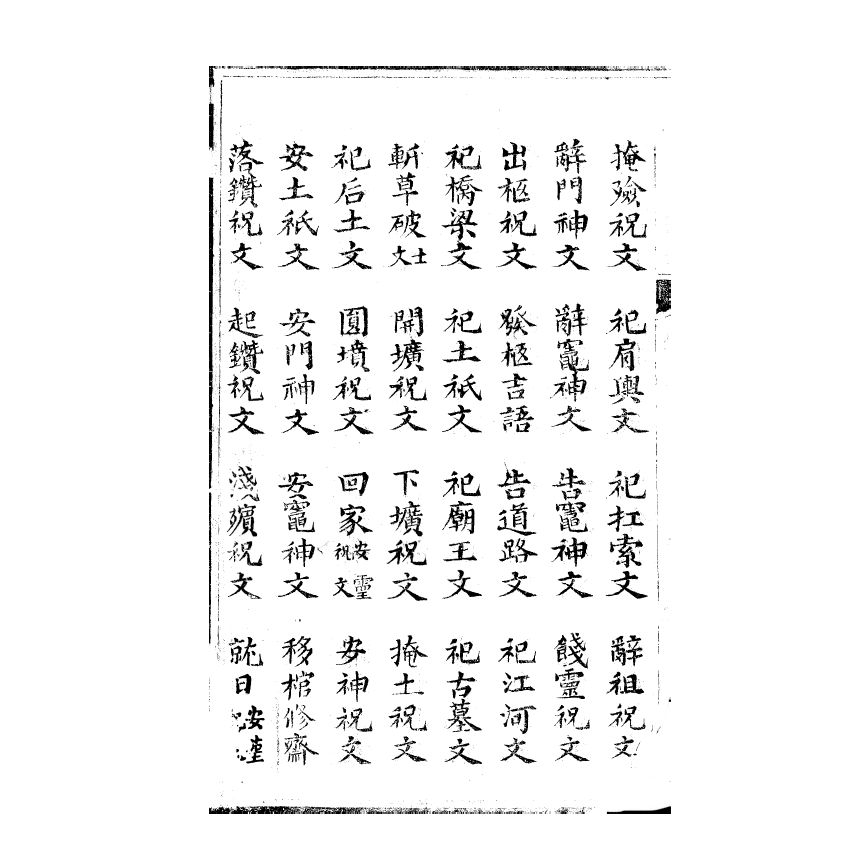 掩殮祝文 祀肩輿文 祀扛索文 辭祖祝文
辭門神文 辭竈神文 告竈神文 餞靈祝文
出柩祝文 發柩吉語 告道路文 祀江河文
祀橋梁文 祀土祇文 祀廟王文 祀古墓文
斬草破土文 開壙祝文 下壙祝文 掩土祝文
祀后土文 圓墳祝文 回家安靈祝文 安神祝文
安土祇文 安門神文 安竈神文 移棺修齋
落鑽祝文 起鑽祝文 淺殯祝文 就日安